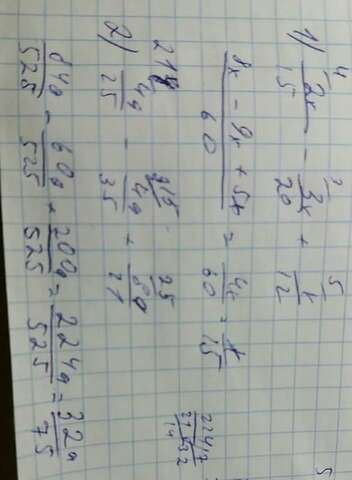 1) 2x/15 - 3x/20 + x/12
8x - 9x + 5x/60 = 4x/60 = x/15
2) 4a/25 - 4a/35 + 8a/21
84a/525 - 60a/525 + 200a/525 = 224a/525 = 32a/75
224 | 7
21 | 32
14
5